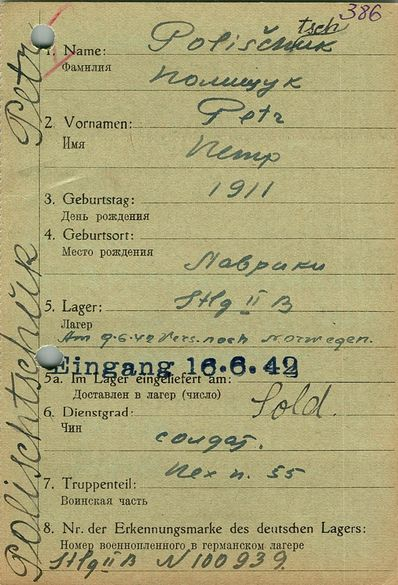 386
tsch
1. Name: Poliščuk
Фамилия
Полищук
2. Vornamen: Petr
Имя
Петр
1911
3. Geburtstag:
День рождения
4. Geburtsort:
Место рождения
Лаврики
5. Lager: Stlg II B
Лагер
Am 9.6.42 Vers. nach Norwegen.
Eingang 16.6.42
5a. Im Lager eingeliefert am:
Доставлен в лагер (число)
6. Dienstgrad: Sold.
Чин
солдат.
Пех п. 55
7. Truppenteil:
Воинская часть
8. Nr. der Erkennungsmarke des deutschen Lagers:
Номер военнопленного в германском лагере
Stlg II B N 100939.
Polischtschuk Petr